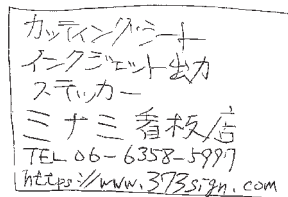 カッティングシート
インクジェット出力
ステッカー
ミナミ看板店
TEL 06-6358-5997
https://www.373sign.com